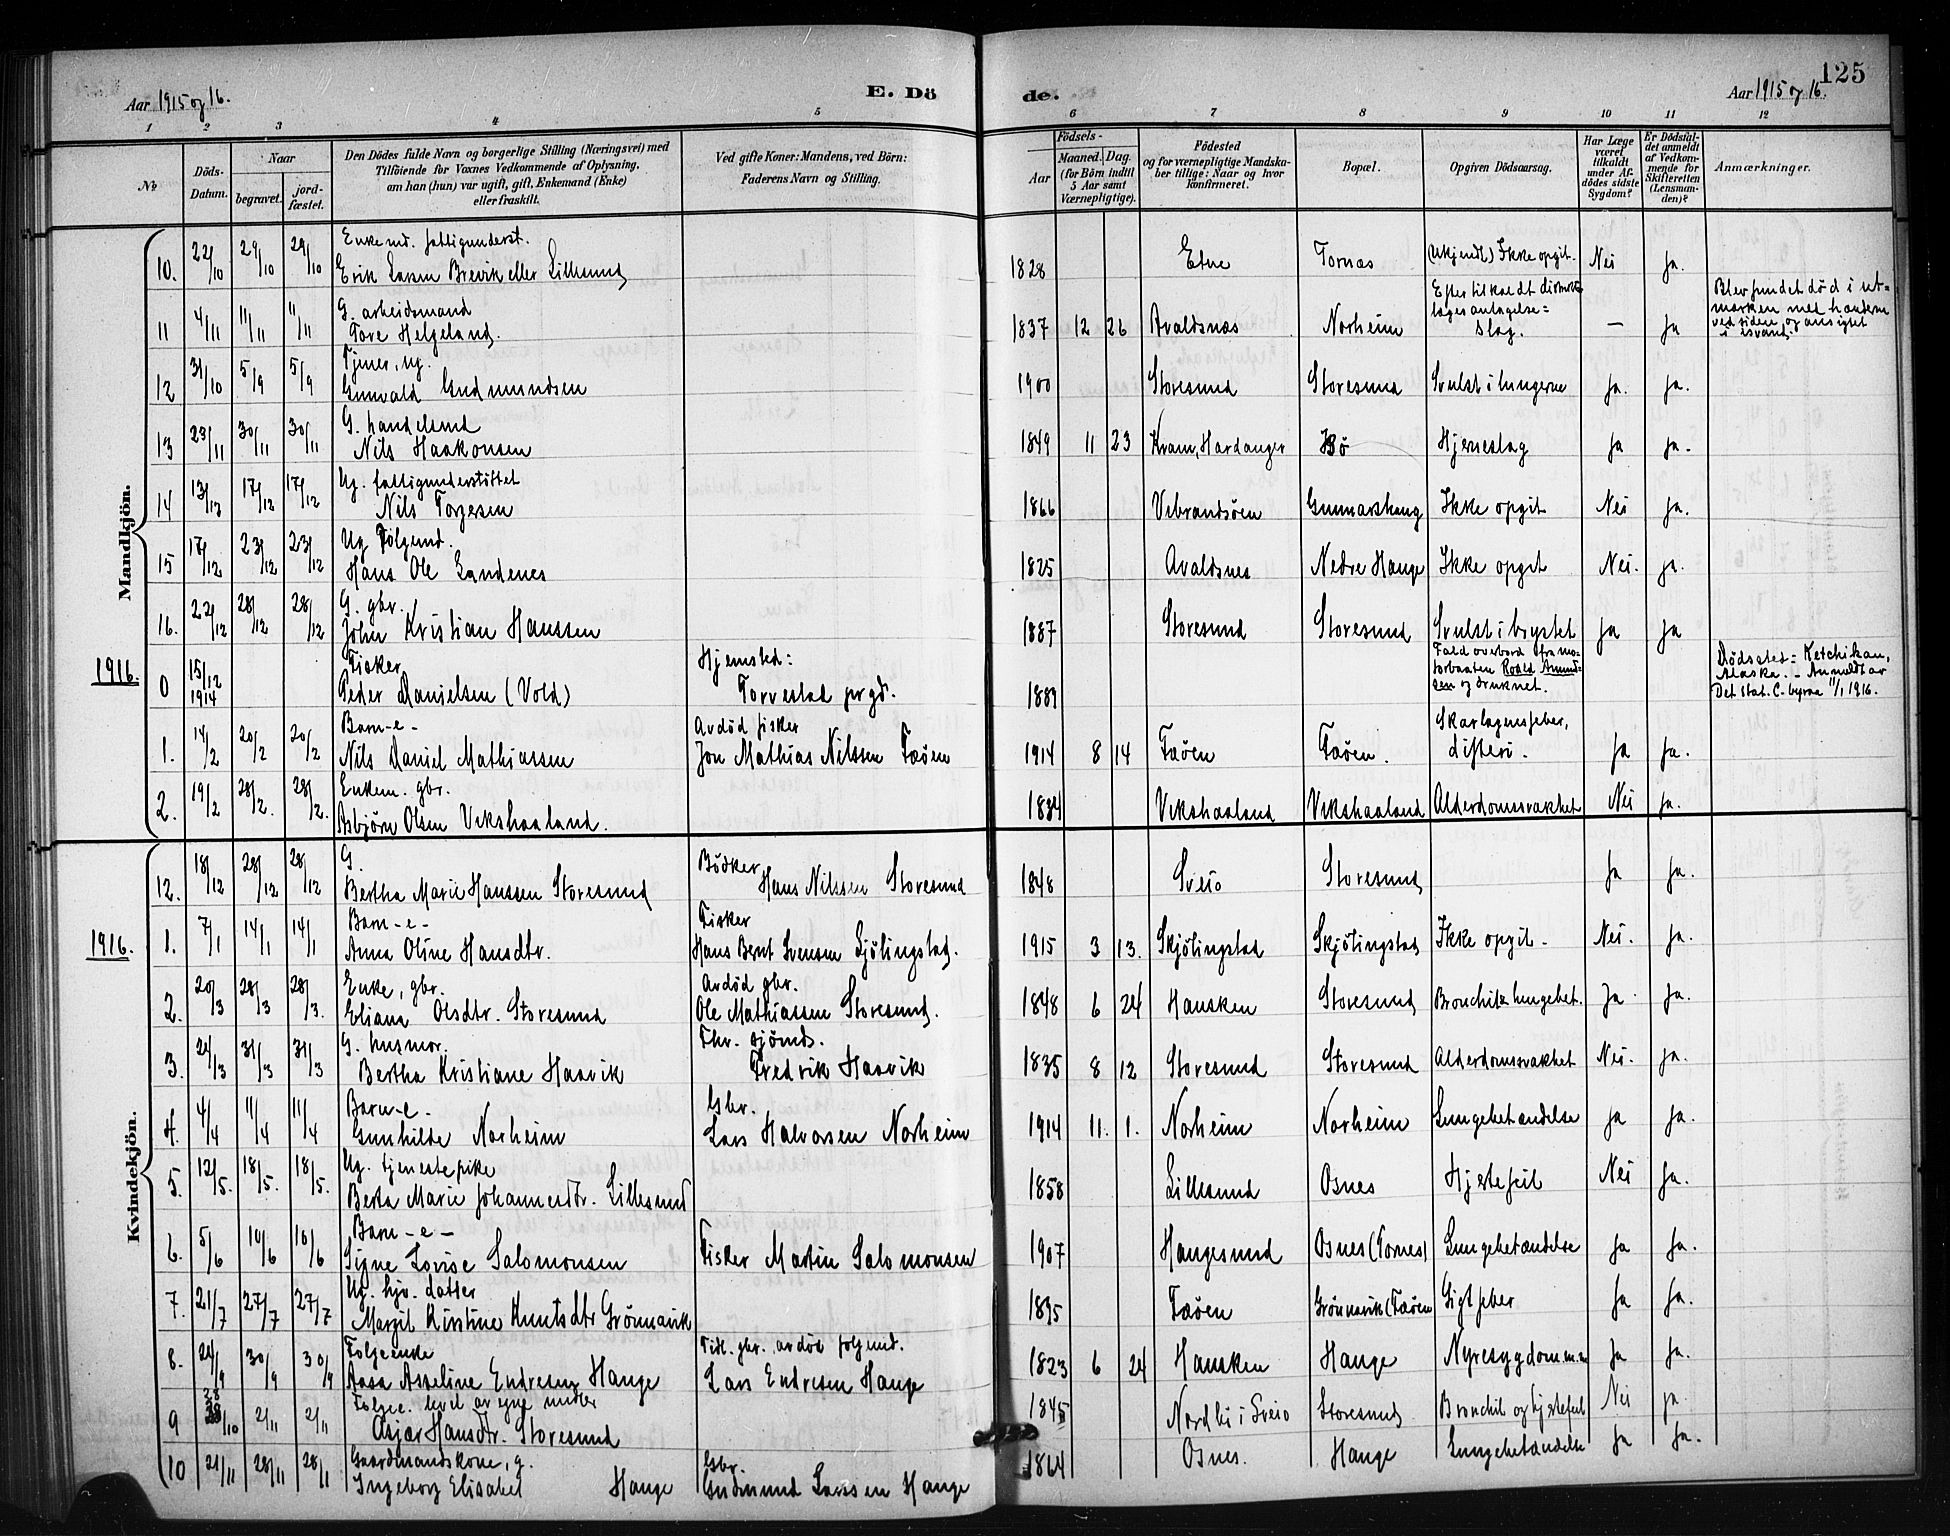 125
Aar 1915 og 16.
E. Dö
de.
Aar 1915 og 16.
1 2 3 4 5 6 7 8 9 10 11 12
No
Döds-Datum.
Naar
begravet.
jord-fæstet.
Den Dödes fulde Navn og borgerlige Stilling (Næringsvei) med
Tilföiende for Voxnes Vedkommende af Oplysning,
om han (hun) var ugift, gift, Enkemand (Enke)
eller fraskilt.
Ved gifte Koner: Mandens, ved Börn:
Faderens Navn og Stilling.
Födsels-
Aar
Maaned. Dag.
(for Börn indtil
5 Aar samt
Værnepligtige).
Födested
og for værnepligtige Mandska-
ber tillige: Naar og hvor
konfirmeret.
Bopæl.
Opgiven Dödsaarsag.
Har Læge
været
tilkaldt
under Af-
dödes sidste
Sygdom?
Er Dödsfal-
det anmeldt
af Vedkom-
mende for
Skifteretten
(Lensman-
den)?
Anmærkninger.
Mandkjön.
10. 22/10 29/10 29/10 Enkemd. fattigunderst.
Erik Larsen Brevik eller Lillesund 1828 Etne Tornæs (Ukjendt) Ikke opgit. Nei Ja.
11 4/11 11/11 11/11 G. arbeidsmand
Tore Helgeland. 1837 12 26 Avaldsnæs Norheim Efter tilkaldt distrikts-
læges antagelse=
Slag. — Ja
Blev fundet død i ut=
marken med hænderne
ved siden og ansigtet
i isvand.
12 31/10 5/9 5/9 Tjener, ug.
Gunvald Gudmundsen 1900 Storesund Storesund Svulst i lungerne Ja. Ja.
13 23/11 30/11 30/11 G. handelsmd
Nils Haakonsen 1849 11 23 Kvam, Hardanger Bö Hjerneslag Ja Ja.
14 13/12 17/12 17/12 Ug. fattigunderstöttet
Nils Torgesen 1866 Vibrandsöen Gunnarshaug Ikke opgit Nei Ja.
15 17/12 23/12 23/12 Ug. Følgemd.
Hans Ole Sandenes 1825 Avaldsnes Nedre Hauge Ikke opgit Nei. Ja.
16. 22/12 28/12 28/12 G. gbr.
Johan Kristian Hanssen 1887 Storesund Storesund Svulst i brystet Ja Ja
1916.
0 15/12 1914 Fisker
Peder Danielsen (Vold) Hjemsted:
Torvestad prgd. 1889 Fald overbord fra mo-
torbaaten Roald Amund-
sen og druknet.
Dödssted: Ketchikan,
Alaska. - Anmeldt av
Det stat. C.-byraa 11/1 1916.
1. 14/2 20/2 20/2 Barn -e-
Nils Daniel Mathiassen Avdöd fisker
Jon Mathias Nilssen Fæöen 1914 8 14 Fæöen Fæöen. Skarlagensfeber,
difteri. Ja Ja.
2. 19/2 28/2. 28/2. Enkem. gbr.
Asbjörn Olsen Vikshaaland. 1834 Vikshaaland Vikshaaland Alderdomssvakhet Nei Ja.
Kvindekjön.
12. 18/12 28/12 28/12 G.
Bertha Marie Hanssen Storesund Bödker
Hans Nilssen Storesund 1848 Sveio Storesund Ja Ja.
1916.
1. 7/1 14/1 14/1 Barn -e-
Anna Oline Hansdtr. Fisker
Hans Bernt Svensen Sjölingstad. 1915 3 13. Skjölingstad Skjölingstad Ikke opgit - Nei. Ja.
2. 20/3 28/3 28/3. Enke, gbr.
Eliana Olsdtr. Storesund Avdöd gbr.
Ole Mathiassen Storesund. 1848 6 24 Hausken Storesund Bronchit & lungebet. Ja. Ja.
3. 24/3 31/3 31/3 G. husmor.
Bertha Kristiane Haavik Fhv. sjömd.
Fredrik Haavik 1835 8 12 Storesund Storesund Alderdomssvakhet Nei. Ja.
4. 4/4 11/4 11/4 Barn -e-
Gunhilde Norheim Gbr.
Lars Halvorsen Norheim 1914 11. 1. Norheim Norheim Lungebetændelse Ja Ja.
5. 12/5. 18/5. 18/5. Ug. tjenestepike
Berta Marie Johannesdtr. Lillesund 1858 Lillesund Osnes Hjertefeil Nei Ja.
6. 5/6 10/6 10/6 Barn -e-
Signe Lovise Salomonsen Fisker Martin Salomonsen 1907 Haugesund Osnes (Tornes) Lungebetændelse Ja Ja.
7. 21/7 27/7 27/7 Ug. hjv. datter
Margit Kristine Knutsdtr Grönnavik 1895 Fæöen Grönnavik (Fæöen Gigtfeber Ja Ja.
8. 24/9 30/9 30/9 Folgeenke
Aasa Asseline Endresen Hauge Tidl. gbr. avdöd folgemd.
Lars Endresen Hauge 1823 6 24 Hausken Hauge Nyresygdommen Ja Ja.
9 28/10 2/11 2/11 Folgee. levet av egne midler
Asjær Hansdtr. Storesund 1845 Nordhi i Sveio Storesund Bronchit og hjertefeil Nei Ja.
10 21/11 28/11 28/11 Gaardmandskone, g.
Ingeborg Elisabet Hauge Gbr.
Gudmund Larssen Hauge 1864 Osnes. Hauge Lungebetændelse Ja Ja.